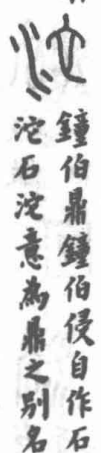 鐘伯鼎鐘伯侵自作石
沱石沱意為鼎之別名